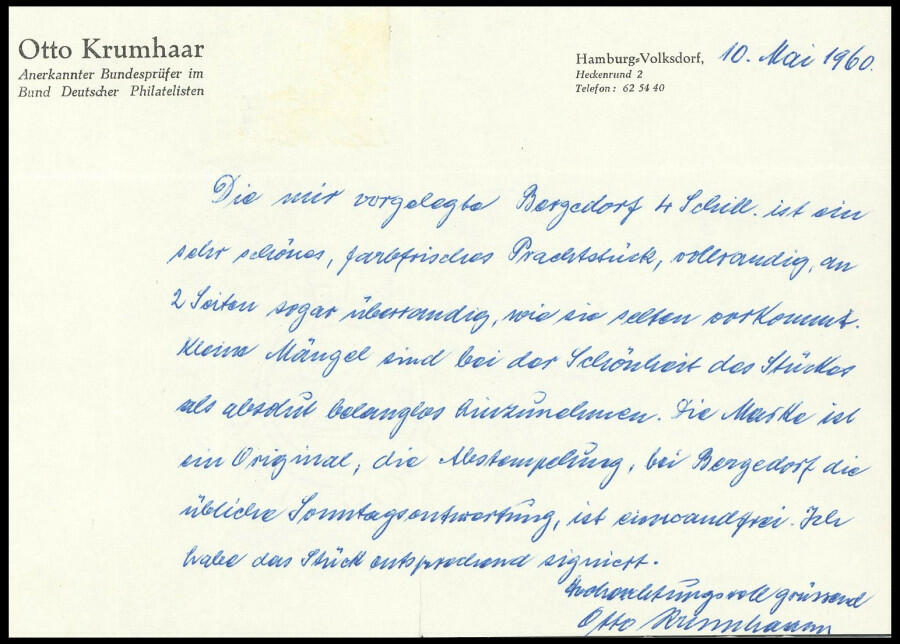 Otto Krumhaar
Anerkannter Bundesprüfer im
Bund Deutscher Philatelisten
Hamburg-Volksdorf, 10. Mai 1960.
Heckenrund 2
Telefon: 62 54 40
Die mir vorgelegte Bergedorf 4 Schill. ist ein
sehr schönes, farbfrisches Prachtstück, vollrandig, an
2 Seiten sogar überrandig, wie sie selten vorkommt.
Kleine Mängel sind bei der Schönheit des Stückes
als absolut belanglos hinzunehmen. Die Marke ist
ein Original, die Abstempelung, bei Bergedorf die
übliche Sonntagsentwertung, ist einwandfrei. Ich
habe das Stück entsprechend signiert.
Hochachtungsvoll grüssend
Otto Krumhaar